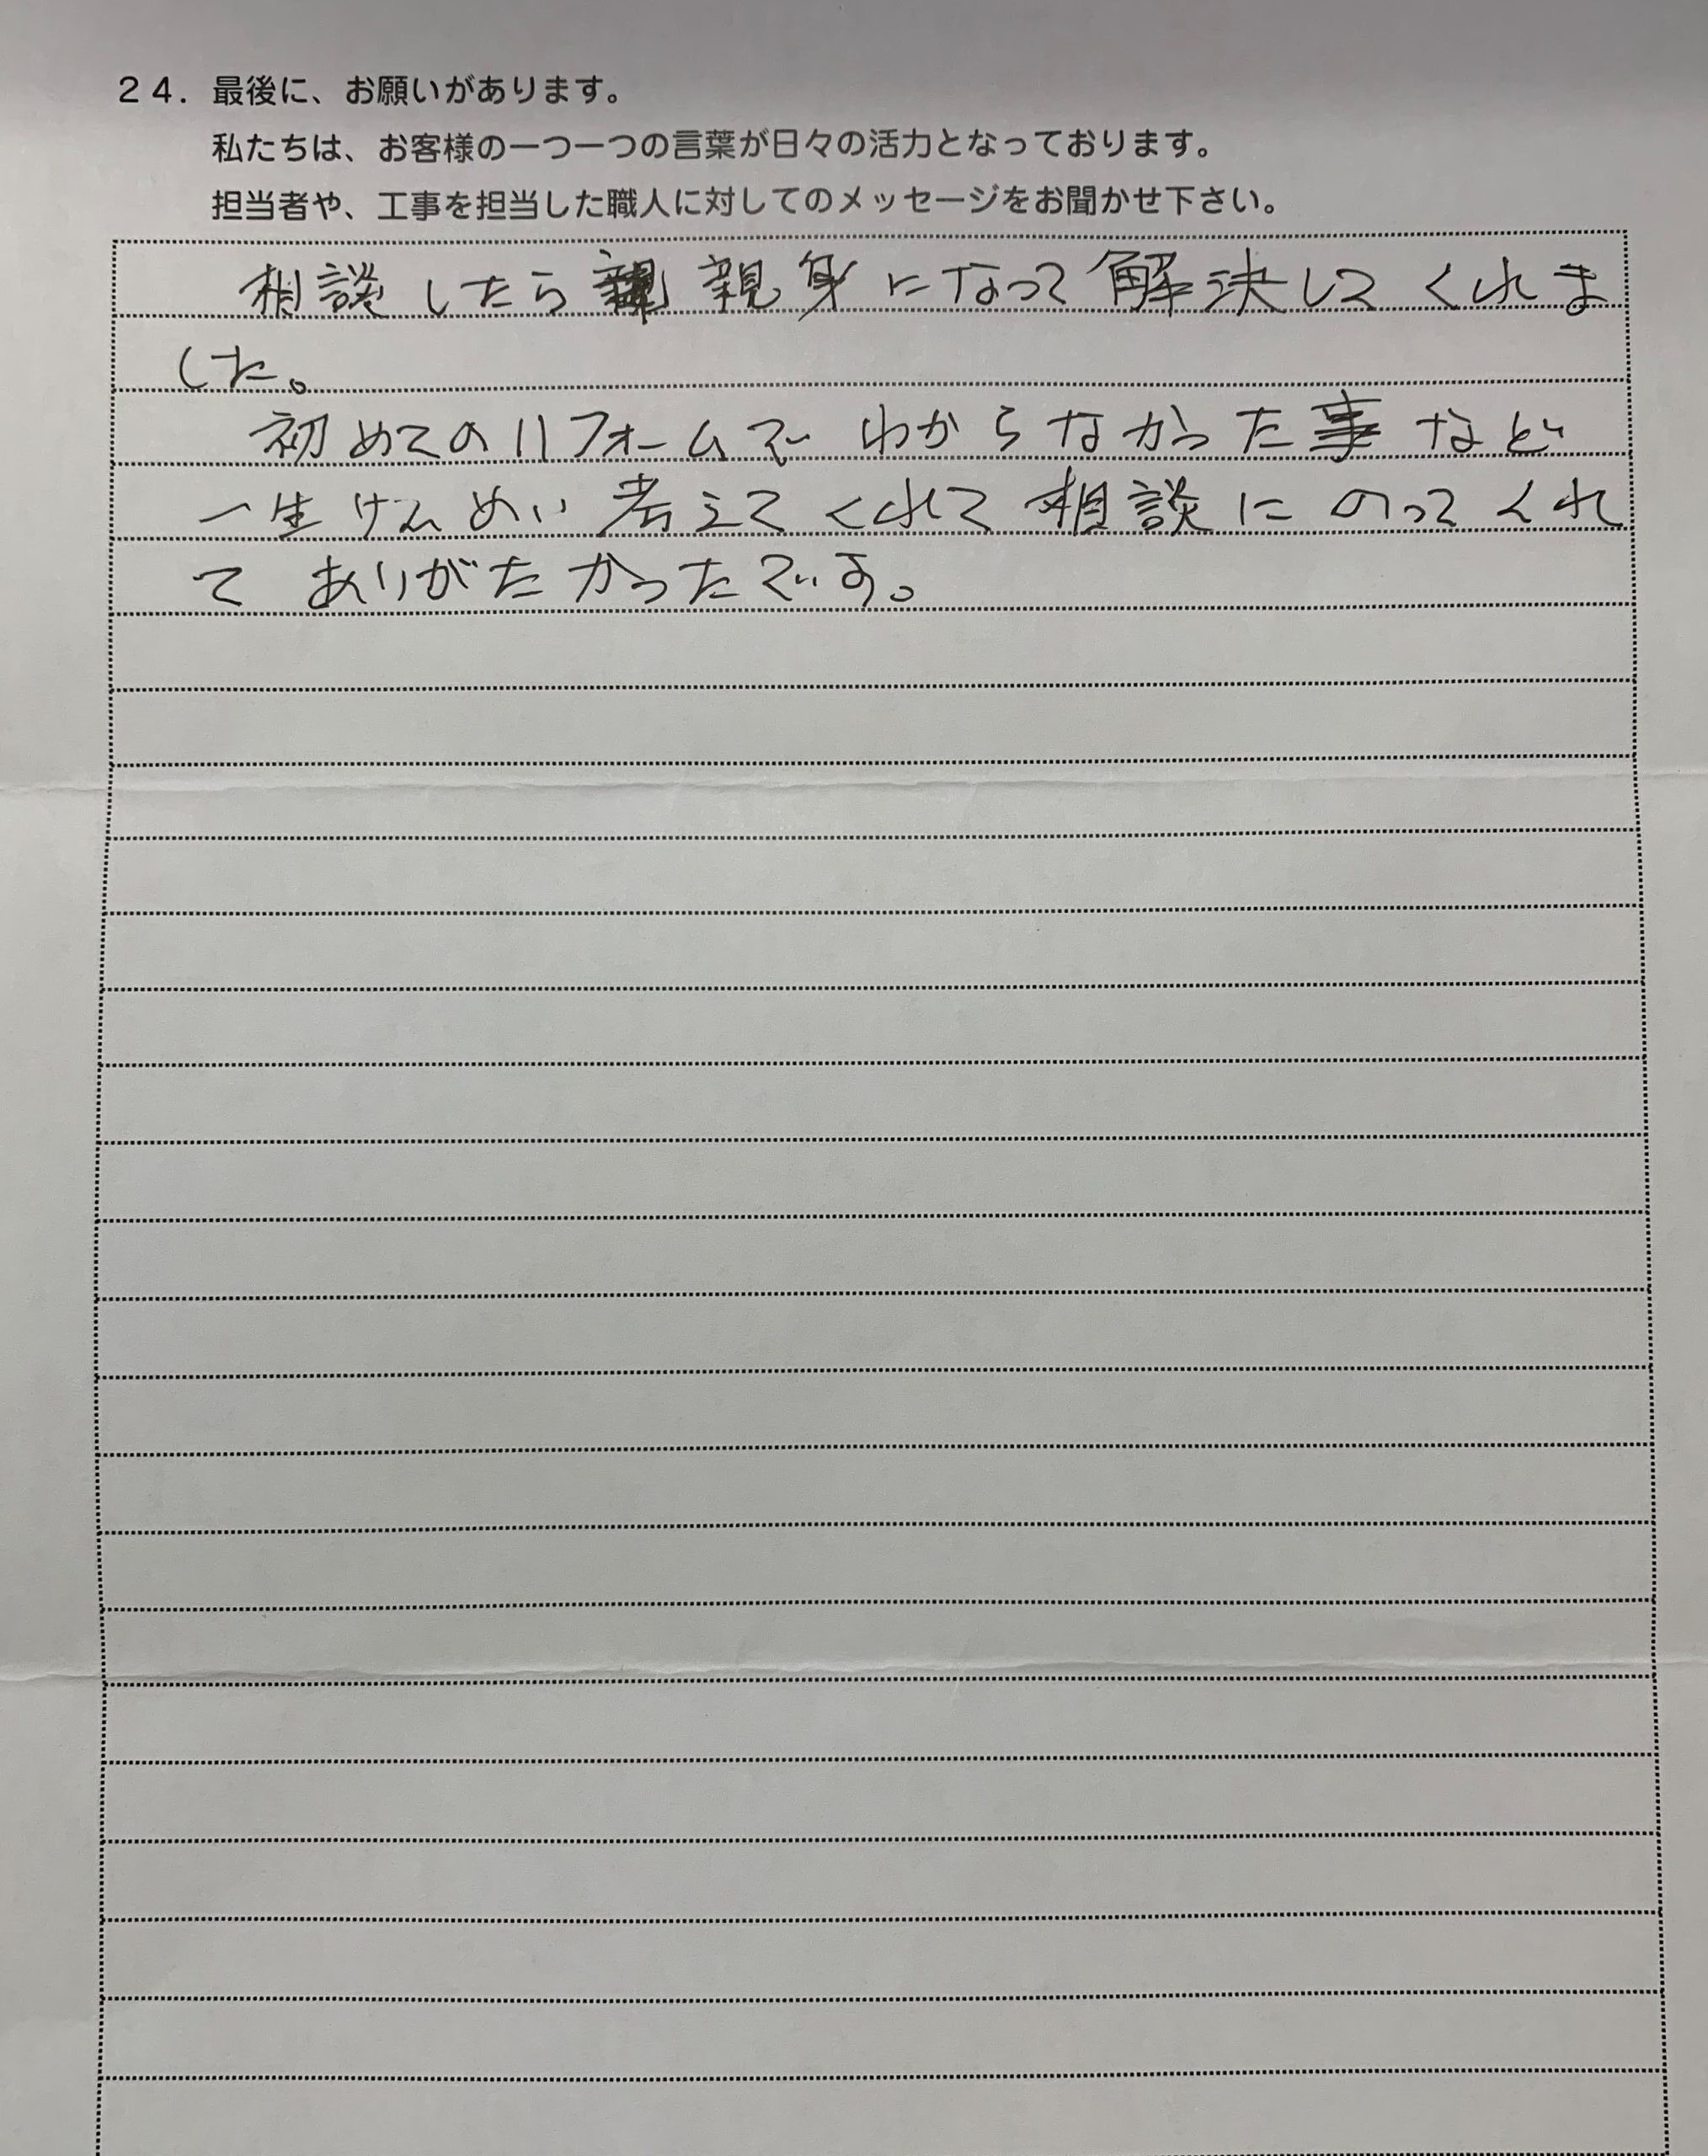 24．最後に、お願いがあります。
私たちは、お客様の一つ一つの言葉が日々の活力となっております。
担当者や、工事を担当した職人に対してのメッセージをお聞かせ下さい。
相談したら親身になって解決してくれま
した。
初めてのリフォームで わからなかった事など
一生けんめい考えてくれて相談にのってくれ
て ありがたかったです。